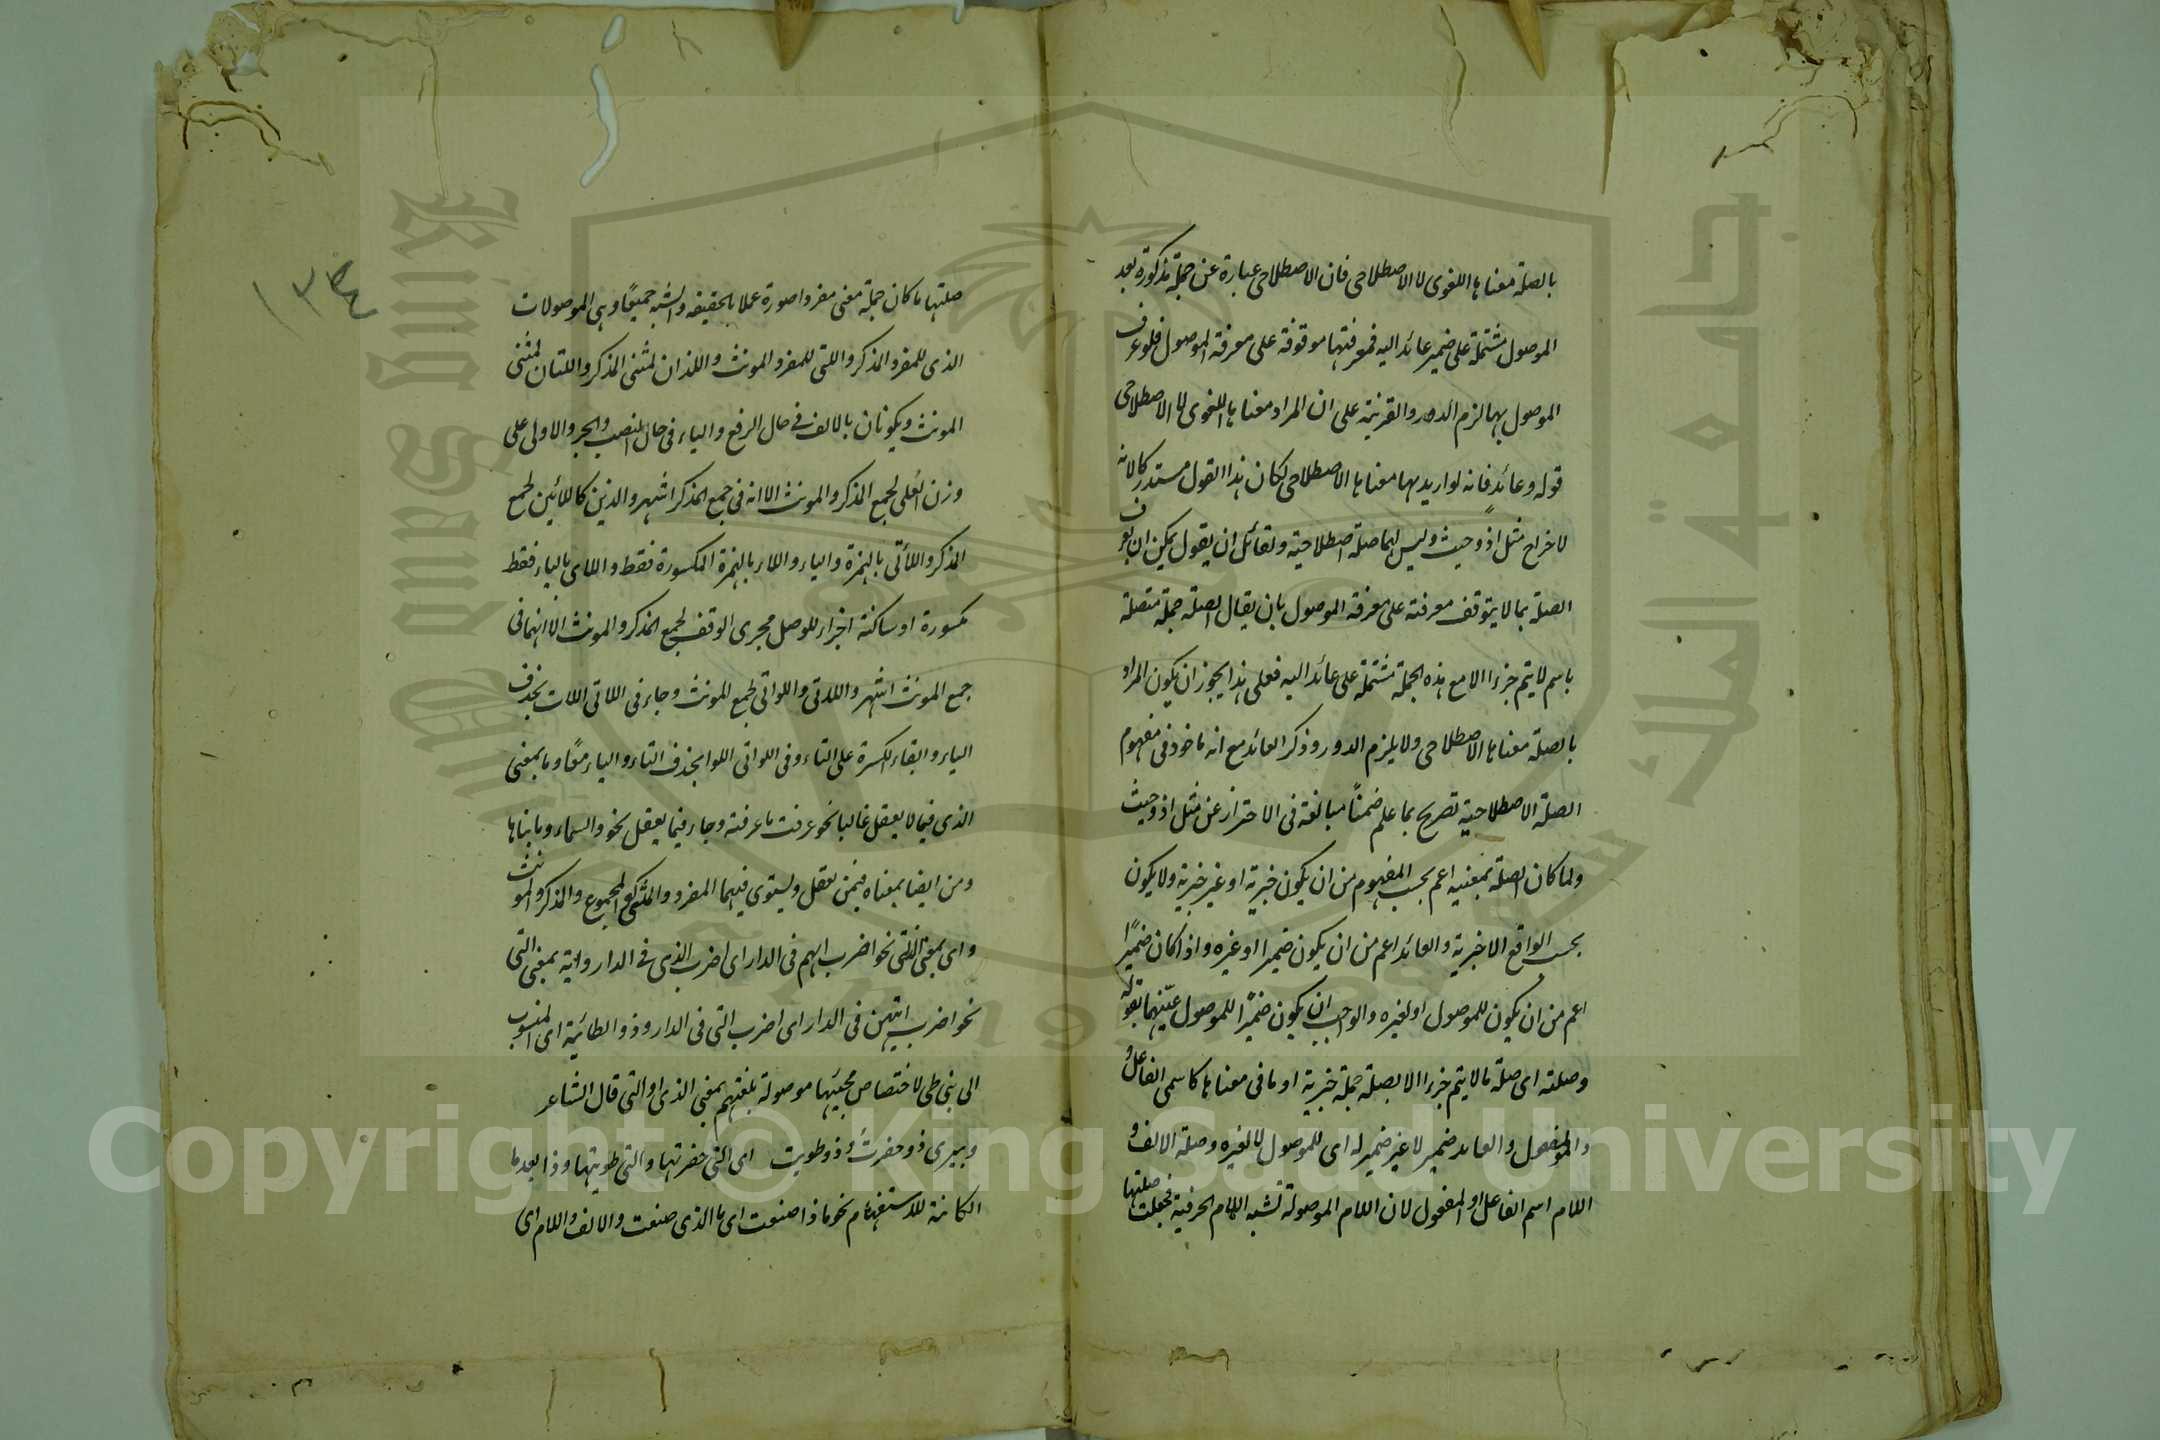 بالصلة معناها اللغوى لا الاصطلاحى فان الاصطلاحى عبارة عن جملة مذكورة بعد
الموصول مشتملة على ضمير عائد اليه فمعرفتها موقوفة على معرفة الموصول فلو عرف
الموصول بها لزم الدور والقرينة على ان المراد معناها اللغوى لا الاصطلاحى
قوله وعائد فانه لو اريد بها معناها الاصطلاحى لكان هذا القول مستدركا لانه
لاخراج مثل اذ وحيث وليس لهما صلة اصطلاحية ولقائل ان يقول يمكن ان يعرف
الصلة بما لا يتوقف معرفته على معرفة الموصول بان يقال الصلة جملة متصلة
باسم لا يتم جزءا الا مع هذه الجملة مشتملة على عائد اليه فعلى هذا يجوز ان يكون المراد
بالصلة معناها الاصطلاحى ولا يلزم الدور وذكر العائد مع انه ماخوذ فى مفهوم
الصلة الاصطلاحية تصريح بما علم ضمنًا مبالغة فى الاحتراز عن مثل اذ وحيث
ولما كان الصلة بمعنييه اعم بحسب المفهوم من ان يكون خبرية او غير خبرية ولا يكون
بحسب الواقع الا خبرية والعائد اعم من ان يكون ضميرا او غيره واذا كان ضميرًا
اعم من ان يكون للموصول او لغيره والواجب ان يكون ضميرًا للموصول عيّنهما بقوله
وصلته اى صلة ما لا يتم جزءا الا بصلة جملة خبرية او ما فى معناها كاسمى الفاعل و
والمفعول والعائد ضمير لا غير ضمير له اى للموصول لا لغيره وصلة الالف و
اللام اسم الفاعل او المفعول لان اللام الموصولة تشبه اللام الحرفية فجعلت صلتها
١٣٤
صلتها ما كان جملة معنى مفردا صورة عملا بالحقيقه والشبه جميعًا وهى الموصولات
الذى للمفرد المذكر والتى للمفرد المونث واللذان لمثنى المذكر واللتان لمثنى
المونث ويكونان بالالف فى حال الرفع والياء فى حال النصب والجر والاولى على
وزن العُلى لجمع المذكر والمونث الا انه فى جمع المذكر اشهر والذين كاللائين لجمع
المذكر واللأتى بالهمزة والياء واللاء بالهمزة المكسورة فقط واللاى بالياء فقط
مكسورة او ساكنة اجراء للوصل مجرى الوقف لجمع المذكر والمونث الا انهما فى
جمع المونث اشهر واللاتى واللواتى لجمع المونث وجاء فى اللاتى اللات بحذف
الياء وابقاء الكسرة على التاء وفى اللواتى اللوا بحذف التاء والياء معًا وما بمعنى
الذى فيما لا يعقل غالبا نحو عرفت ما عرفته وجاء فيما يعقل نحو والسماء وما بناها
ومن ايضا بمعناه فيمن يعقل ويستوى فيهما المفرد والمثنى والمجموع والمذكر والمونث
واى بمعنى الذى نحو اضرب ايهم فى الدار اى اضرب الذى فى الدار واية بمعنى التى
نحو اضرب ايتهن فى الدار اى اضرب التى فى الدار وذو الطائية اى المنسوب
الى بنى طى لاختصاص مجيئها موصولة بلغتهم بمعنى الذى او التى قال الشاعر
وبيرى ذو حفرتُ وذو طويت اى التى حفرتها والتى طويتها وذا بعد ما
الكائنة للاستفهام نحو ماذا صنعت اى ما الذى صنعت والالف واللام اى
Copyright © King Saud University